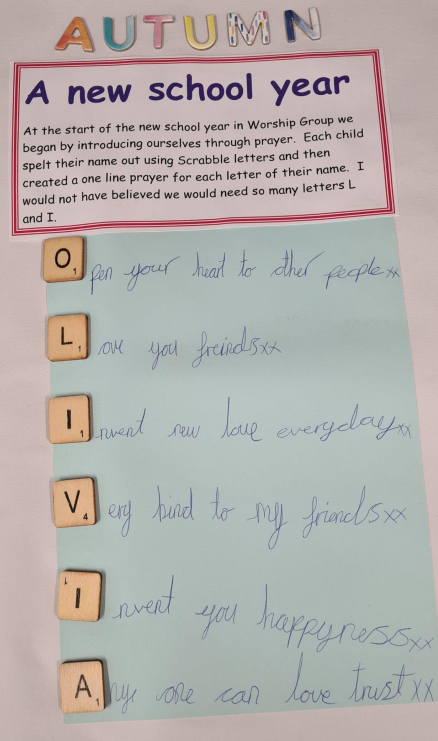 AUTUMN
A new school year
At the start of the new school year in Worship Group we
began by introducing ourselves through prayer. Each child
spelt their name out using Scrabble letters and then
created a one line prayer for each letter of their name. I
would not have believed we would need so many letters L
and I.
O1 pen your heart to other peoplexx
L1 ove you freindsxx
I1 nvent new love everydayxx
V4 ery kind to my friendsxx
I1 nvent you happynessxx
A1 nye one can love trustxx